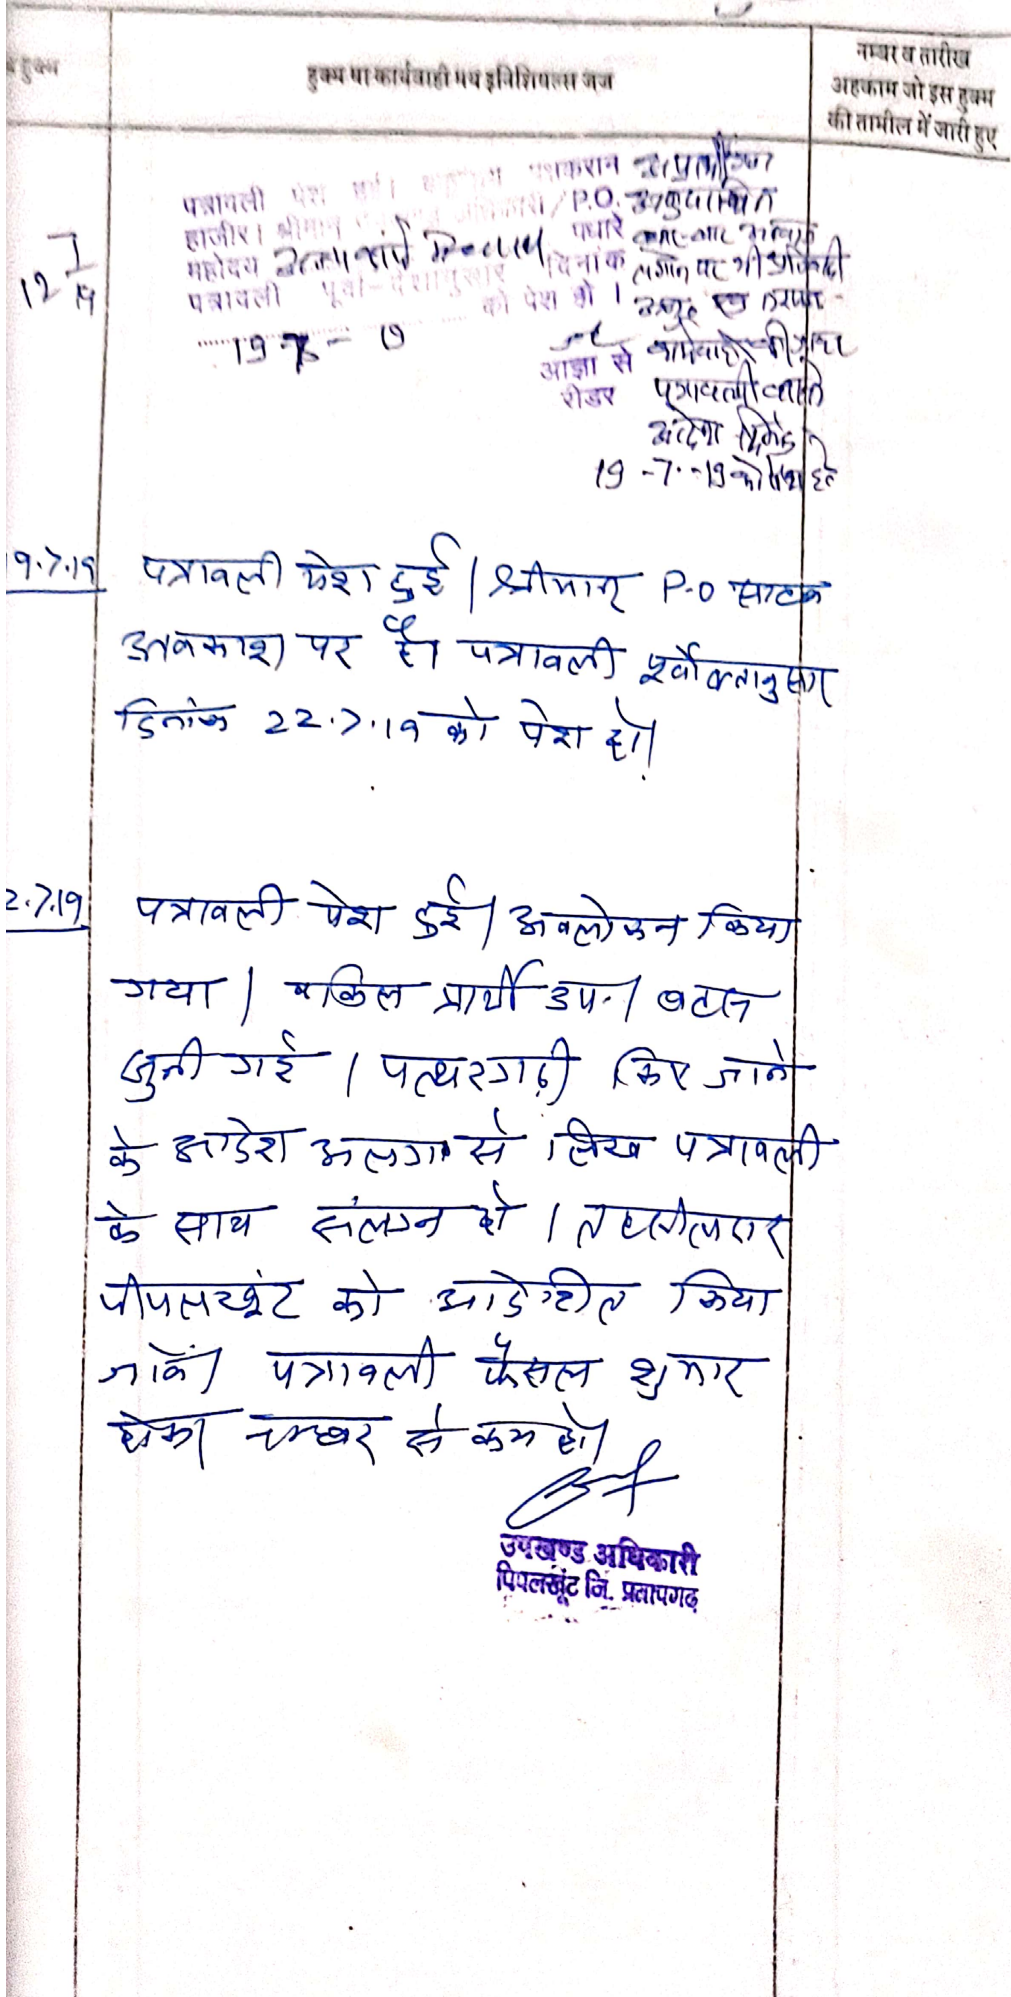 हुक्म
हुक्म या कार्यवाही मय इनिशियल्स जज
नम्बर व तारीख
अहकाम जो इस हुक्म
की तामील में जारी हुए
12 7/19
पत्रावली पेश हुई।
हाजीर। श्रीमान / P.O.
महोदय पधारे
पत्रावली दिनांक
को पेश हो।
19-7-19
आज्ञा से
रीडर
अनुपस्थित
बार-बार
लगाने पर भी
पत्रावली वास्ते
19-7-19 को पेश हो
9.7.19 पत्रावली पेश हुई। श्रीमान P.O साहब
अवकाश पर है। पत्रावली पूर्वोक्तानुसार
दिनांक 22.7.19 को पेश हो।
2.7.19 पत्रावली पेश हुई। अवलोकन किया
गया। वकिल प्रार्थी उप.। बहस
सुनी गई। पत्थरगढ़ी किए जाने
के आदेश अलग से लिख पत्रावली
के साथ संलग्न हो। तहसीलदार
पीपलखूंट को आदेशित किया
जावें। पत्रावली फैसल शुमार
होकर नम्बर से कम हो।
उपखण्ड अधिकारी
पिपलखूंट जि. प्रतापगढ़